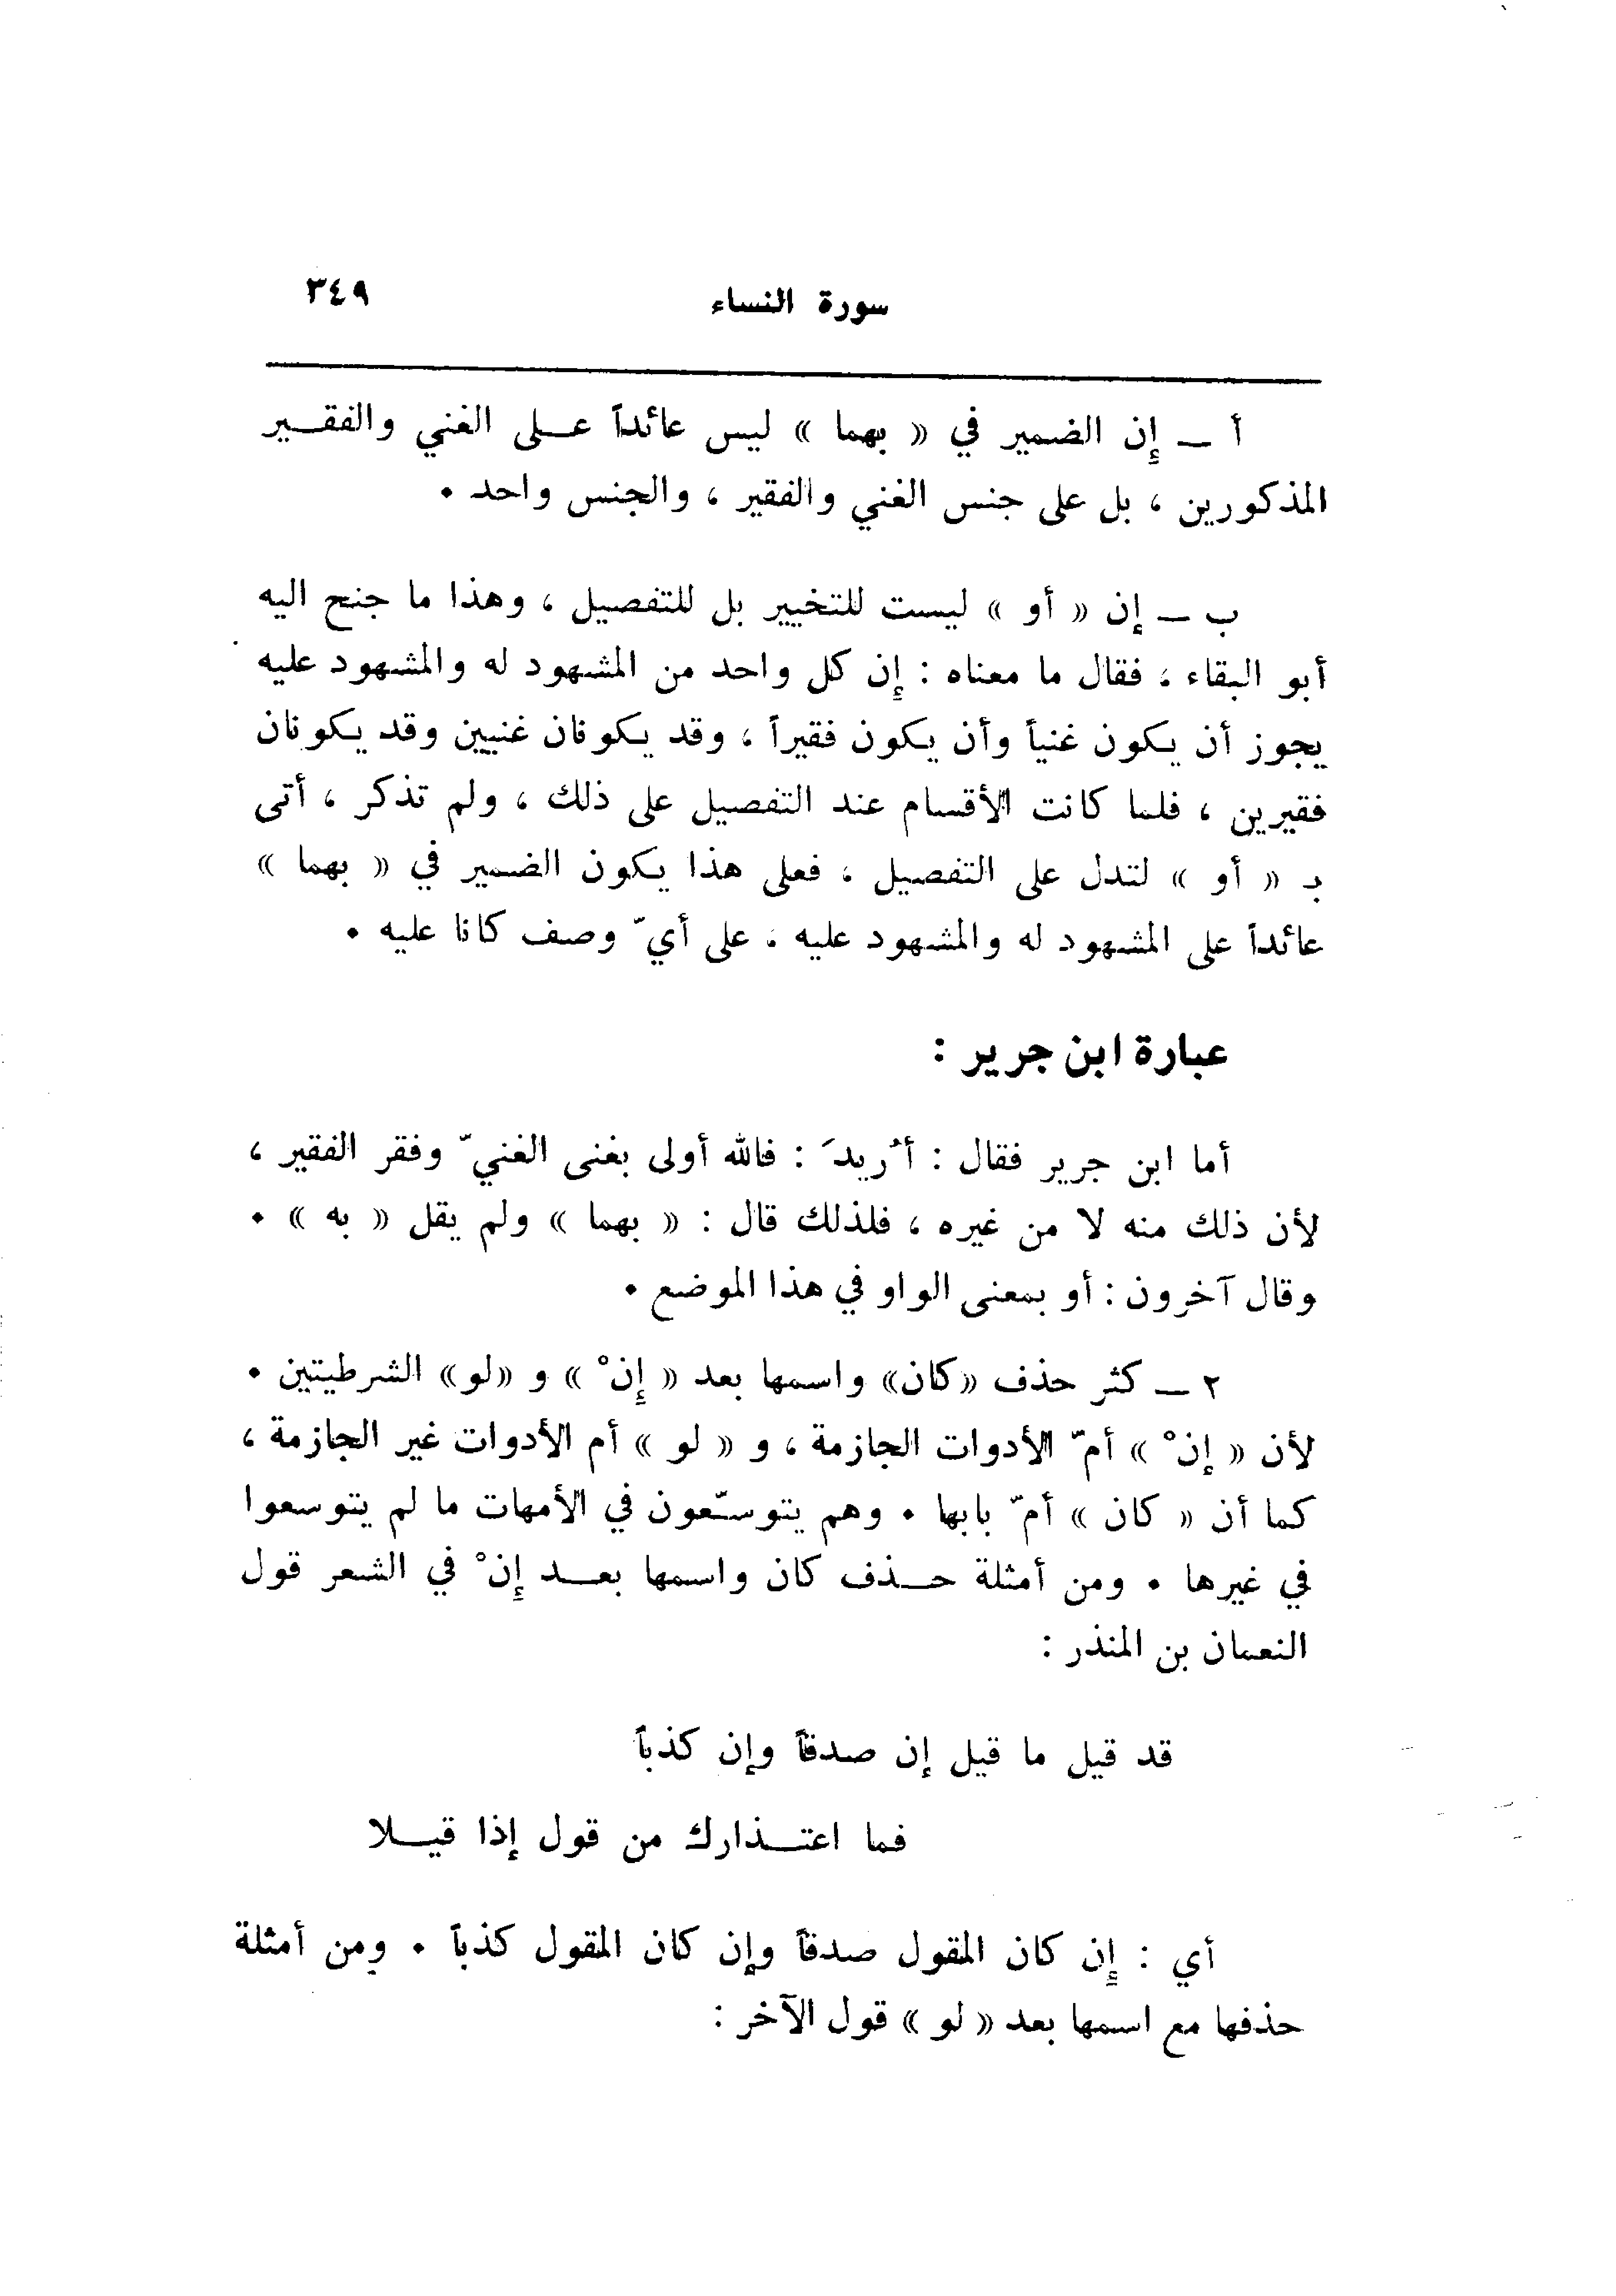 سورة النساء ٣٤٩
أ ــ إن الضمير في « بهما » ليس عائداً عــلى الغني والفقــير
المذكورين ، بل على جنس الغني والفقير ، والجنس واحد .
ب ــ إن « أو » ليست للتخيير بل للتفصيل ، وهذا ما جنح اليه
أبو البقاء ، فقال ما معناه : إن كل واحد من المشهود له والمشهود عليه
يجوز أن يكون غنياً وأن يكون فقيراً ، وقد يكونان غنيين وقد يكونان
فقيرين ، فلما كانت الأقسام عند التفصيل على ذلك ، ولم تذكر ، أتى
بـ « أو » لتدل على التفصيل ، فعلى هذا يكون الضمير في « بهما »
عائداً على المشهود له والمشهود عليه ، على أيّ وصف كانا عليه .
عبارة ابن جرير :
أما ابن جرير فقال : أُريدَ : فالله أولى بغنى الغنيّ وفقر الفقير ،
لأن ذلك منه لا من غيره ، فلذلك قال : « بهما » ولم يقل « به » .
وقال آخرون : أو بمعنى الواو في هذا الموضع .
٢ ــ كثر حذف «كان» واسمها بعد « إنْ » و «لو» الشرطيتين .
لأن « إنْ » أمّ الأدوات الجازمة ، و « لو » أم الأدوات غير الجازمة ،
كما أن « كان » أمّ بابها . وهم يتوسّعون في الأمهات ما لم يتوسعوا
في غيرها . ومن أمثلة حــذف كان واسمها بعــد إنْ في الشعر قول
النعمان بن المنذر :
قد قيل ما قيل إن صدقاً وإن كذباً
فما اعتــذارك من قول إذا قيــلا
أي : إن كان المقول صدقاً وإن كان المقول كذباً . ومن أمثلة
حذفها مع اسمها بعد « لو » قول الآخر :